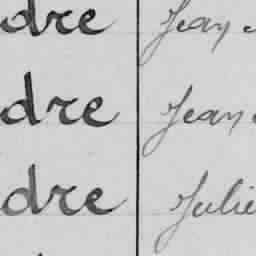 dre Jean
dre Jean
dre Julie